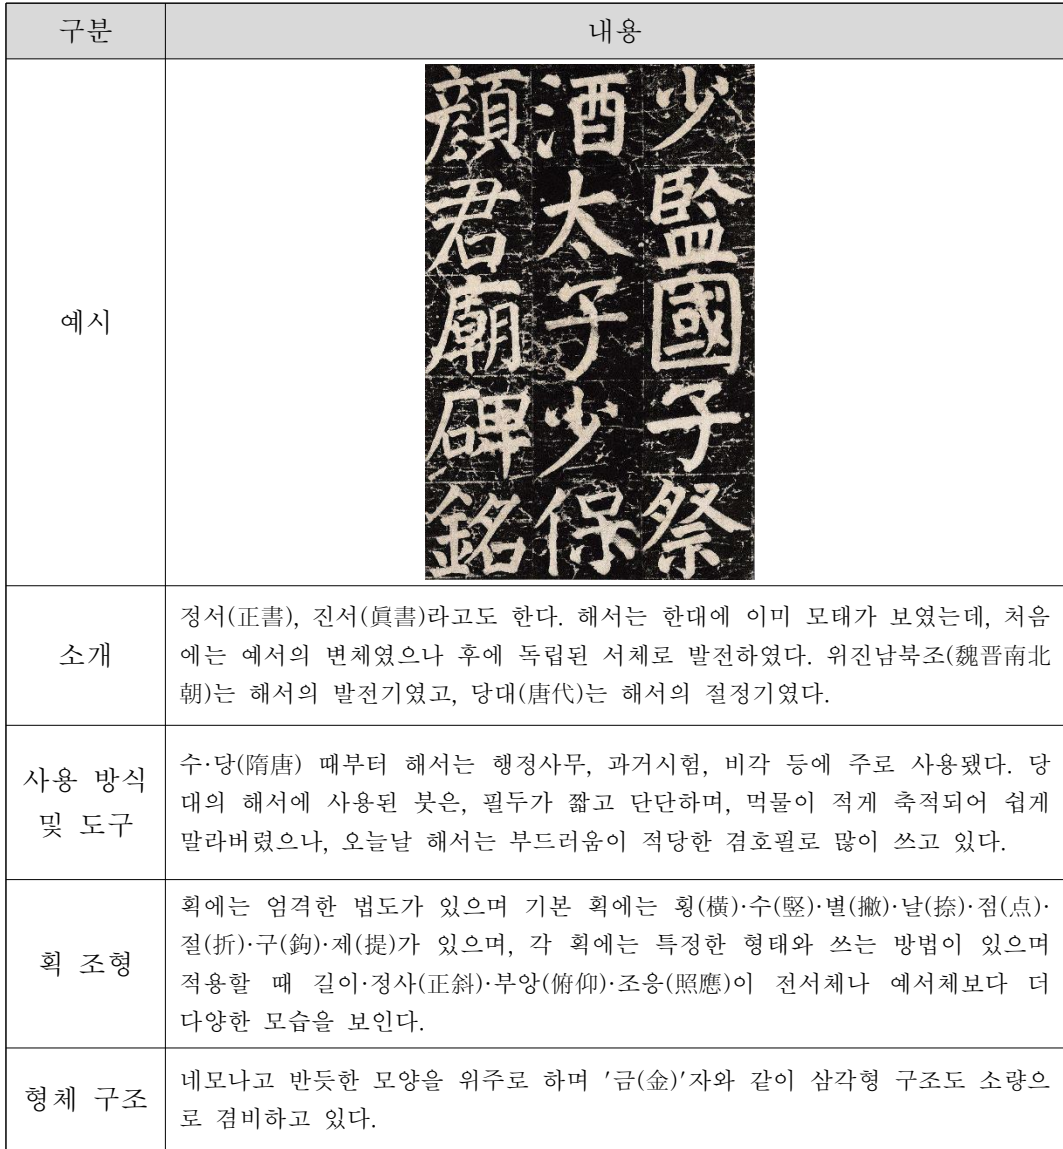 구분
내용
예시
少監國子祭
酒太子少保
顔君廟碑銘
소개
정서(正書), 진서(眞書)라고도 한다. 해서는 한대에 이미 모태가 보였는데, 처음
에는 예서의 변체였으나 후에 독립된 서체로 발전하였다. 위진남북조(魏晋南北
朝)는 해서의 발전기였고, 당대(唐代)는 해서의 절정기였다.
사용 방식
및 도구
수·당(隋唐) 때부터 해서는 행정사무, 과거시험, 비각 등에 주로 사용됐다. 당
대의 해서에 사용된 붓은, 필두가 짧고 단단하며, 먹물이 적게 축적되어 쉽게
말라버렸으나, 오늘날 해서는 부드러움이 적당한 겸호필로 많이 쓰고 있다.
획 조형
획에는 엄격한 법도가 있으며 기본 획에는 횡(橫)·수(竪)·별(撇)·날(捺)·점(点)·
절(折)·구(鉤)·제(提)가 있으며, 각 획에는 특정한 형태와 쓰는 방법이 있으며
적용할 때 길이·정사(正斜)·부앙(俯仰)·조응(照應)이 전서체나 예서체보다 더
다양한 모습을 보인다.
형체 구조
네모나고 반듯한 모양을 위주로 하며 '금(金)'자와 같이 삼각형 구조도 소량으
로 겸비하고 있다.